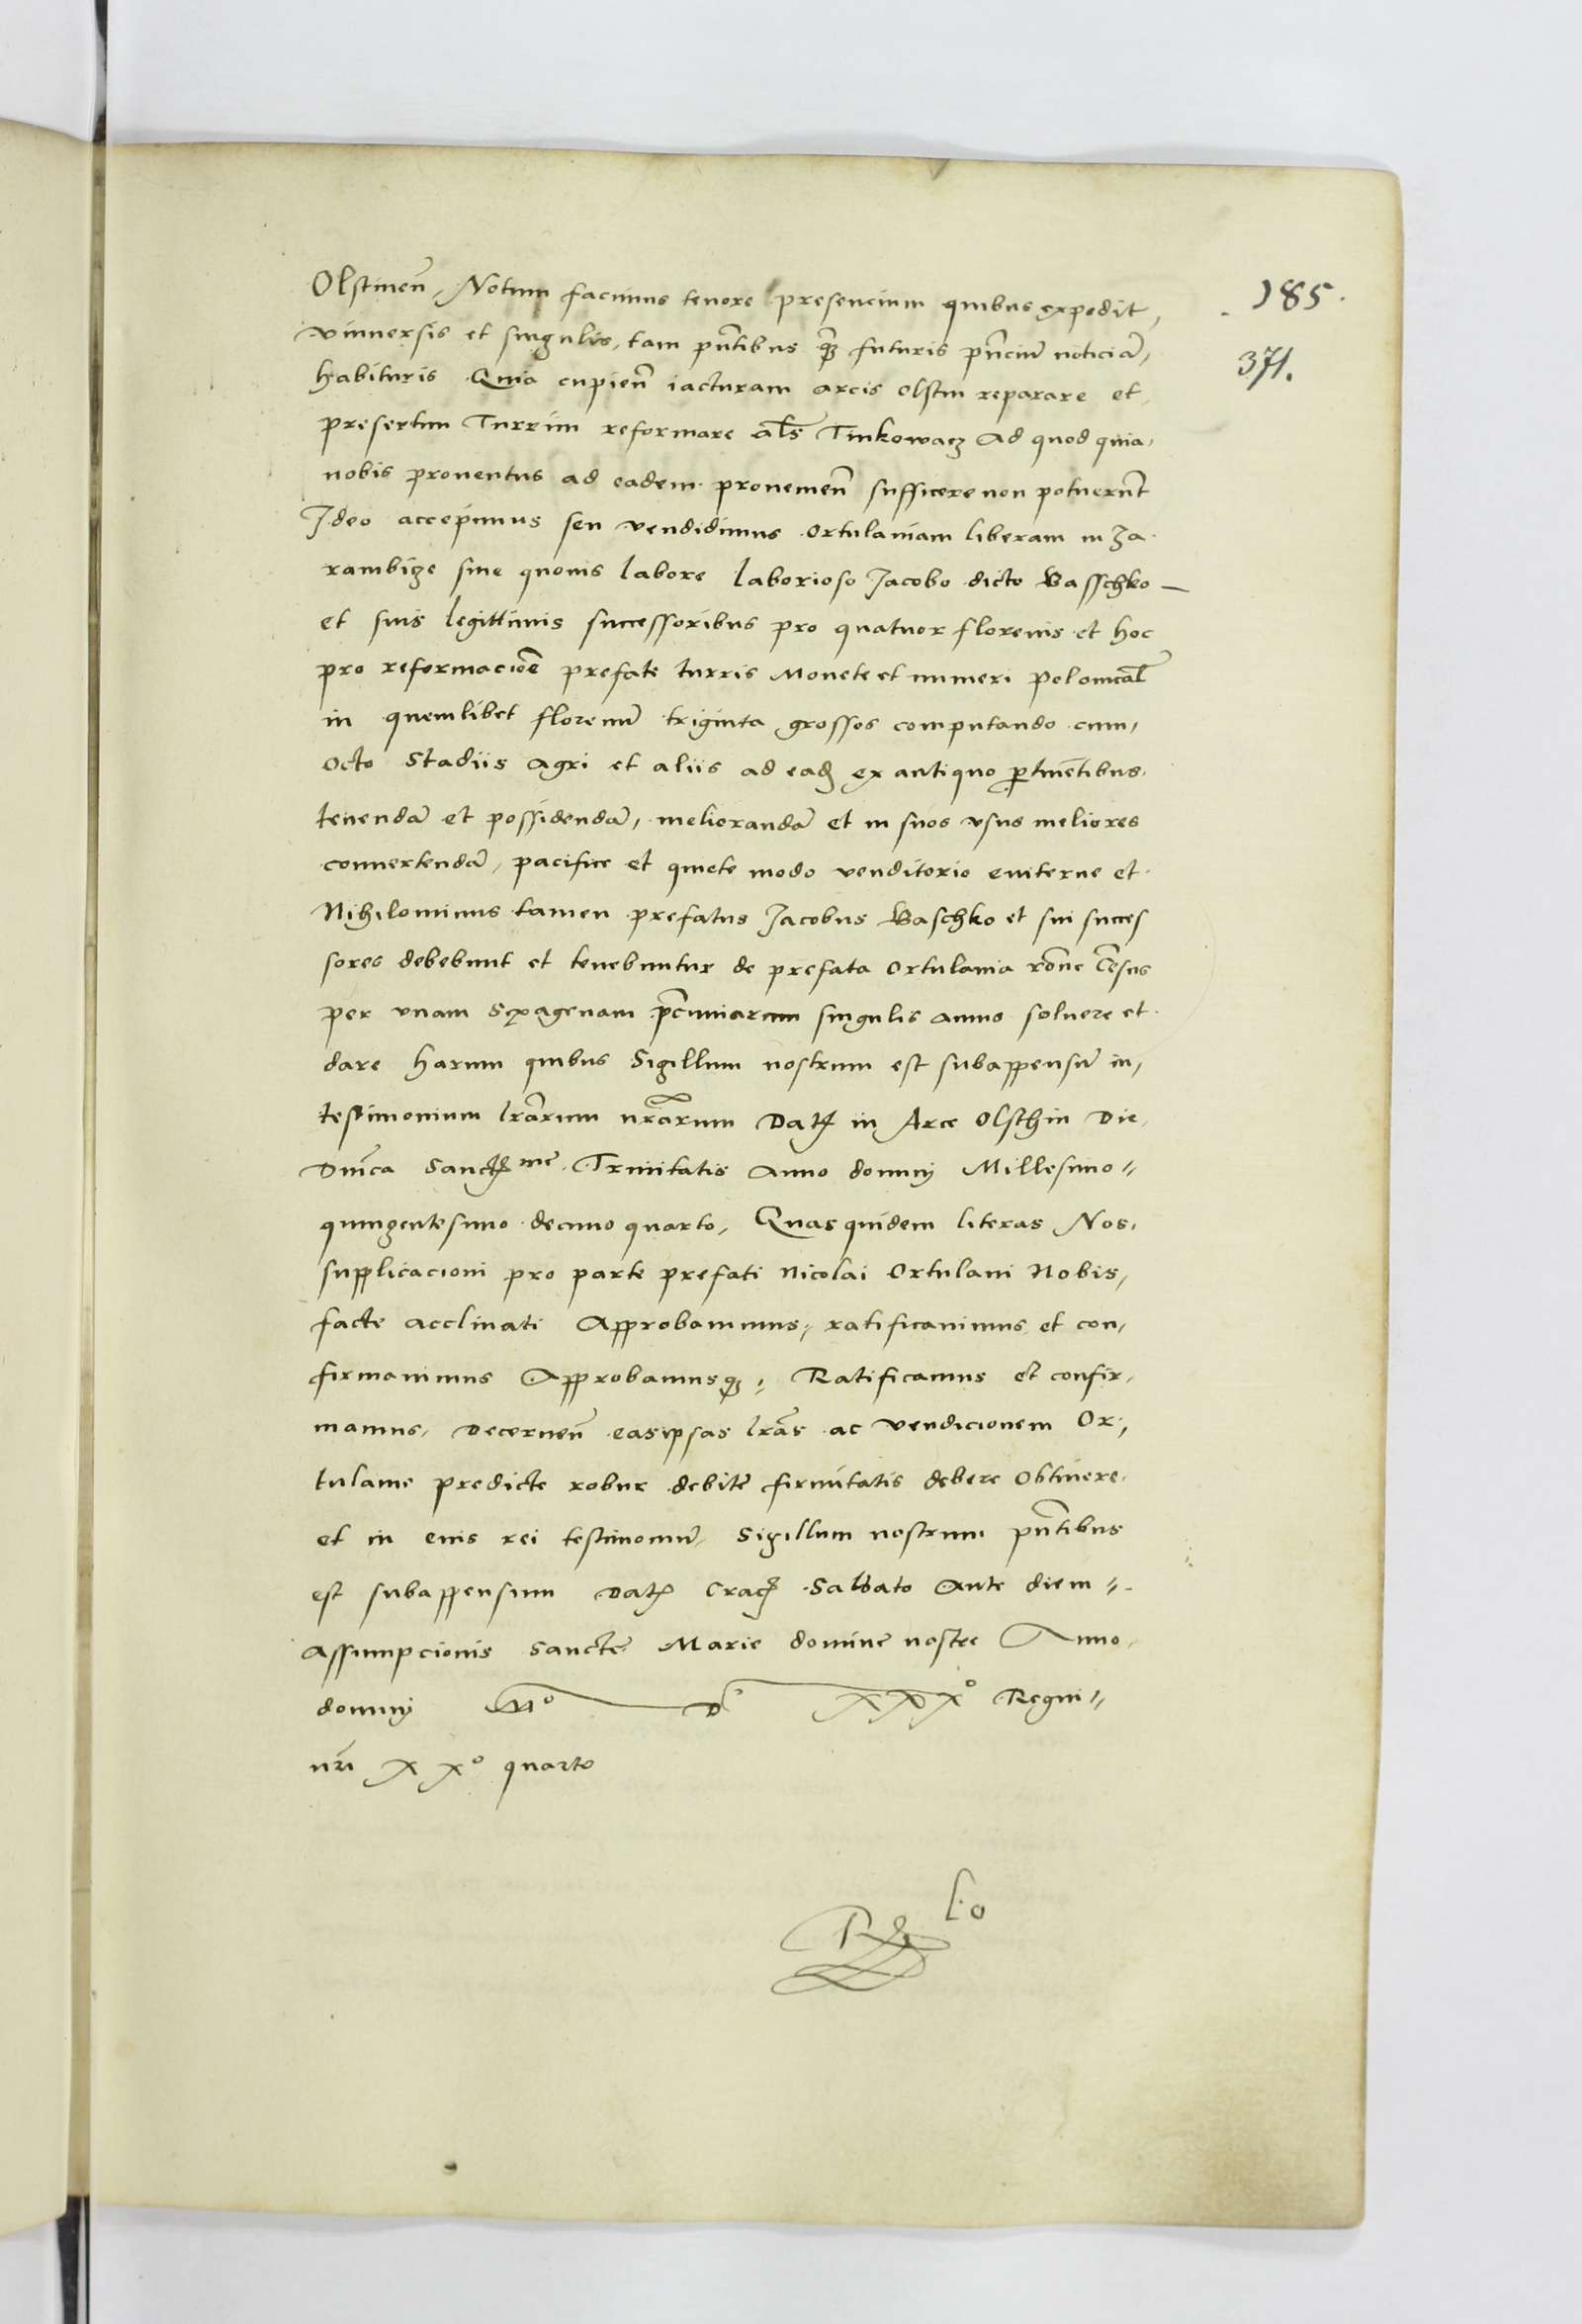 Olstinen̄, Notum facimus tenore presencium quibus expedit,
185.
vniuersis et singulis, tam pñtibus q̃ȝ futuris pñciuȝ noticiã,
371.
habituris Quia cupien̄ iacturam arcis Olstin reparare et
presertim Turrim reformare als̄ Tinkowacz Ad quod quia,
nobis prouentus ad eadem prouenien̄ sufficere non potuerūt
Ideo accepimus seu vendidimus Ortulaniam liberam in Za
rambize sine quouis labore laborioso Jacobo dicto Basschko —
et suis legittimis successoribus pro quatuor florenis et hoc
pro reformacioē prefate turris Monete et numeri polonical̄
in quemlibet florenū triginta grossos computando cum,
Octo Stadiis agri et aliis ad eaḋ ex antiquo ꝑtinētibus
tenendã et possidendã, meliorandã et in suos vsus meliores
conuertendã, pacifice et quiete modo venditorio euiterne et
Nihilominus tamen prefatus Jacobus Baschko et sui succes
sores debebunt et tenebuntur de prefata Ortulania rõne Cēsus
per vnam Sexagenam pēcuniarum singulis annis soluere et
dare harum quibus Sigillum nostrum est subappensū in,
testimonium lrārum nrārum Datȝ in Arce Olschin Die
Dnīca Sanctissime Trinitatis Anno dominj Millesimo"
quingentesimo decimo quarto, Quas quidem literas Nos,
supplicacioni pro parte prefati Nicolai Ortulani Nobis,
facte acclinati Approbauimus, ratificauimus et con,
firmauimus Approbamusqȝ, Ratificamus et confir,
mamus, Decernen̄ easipsas lrās ac vendicionem Or,
tulanie predicte robur debite firmitatis debere obtinere
et in euis rei testimoniū, Sigillum nostrum pñtibus
est subappensum Datȝ Cracȝ Sabbato Ante diem"
Assumpcionis Sancte Marie domine nostre Anno
dominj Mº D XXXº Regni"
nrī XXº quarto